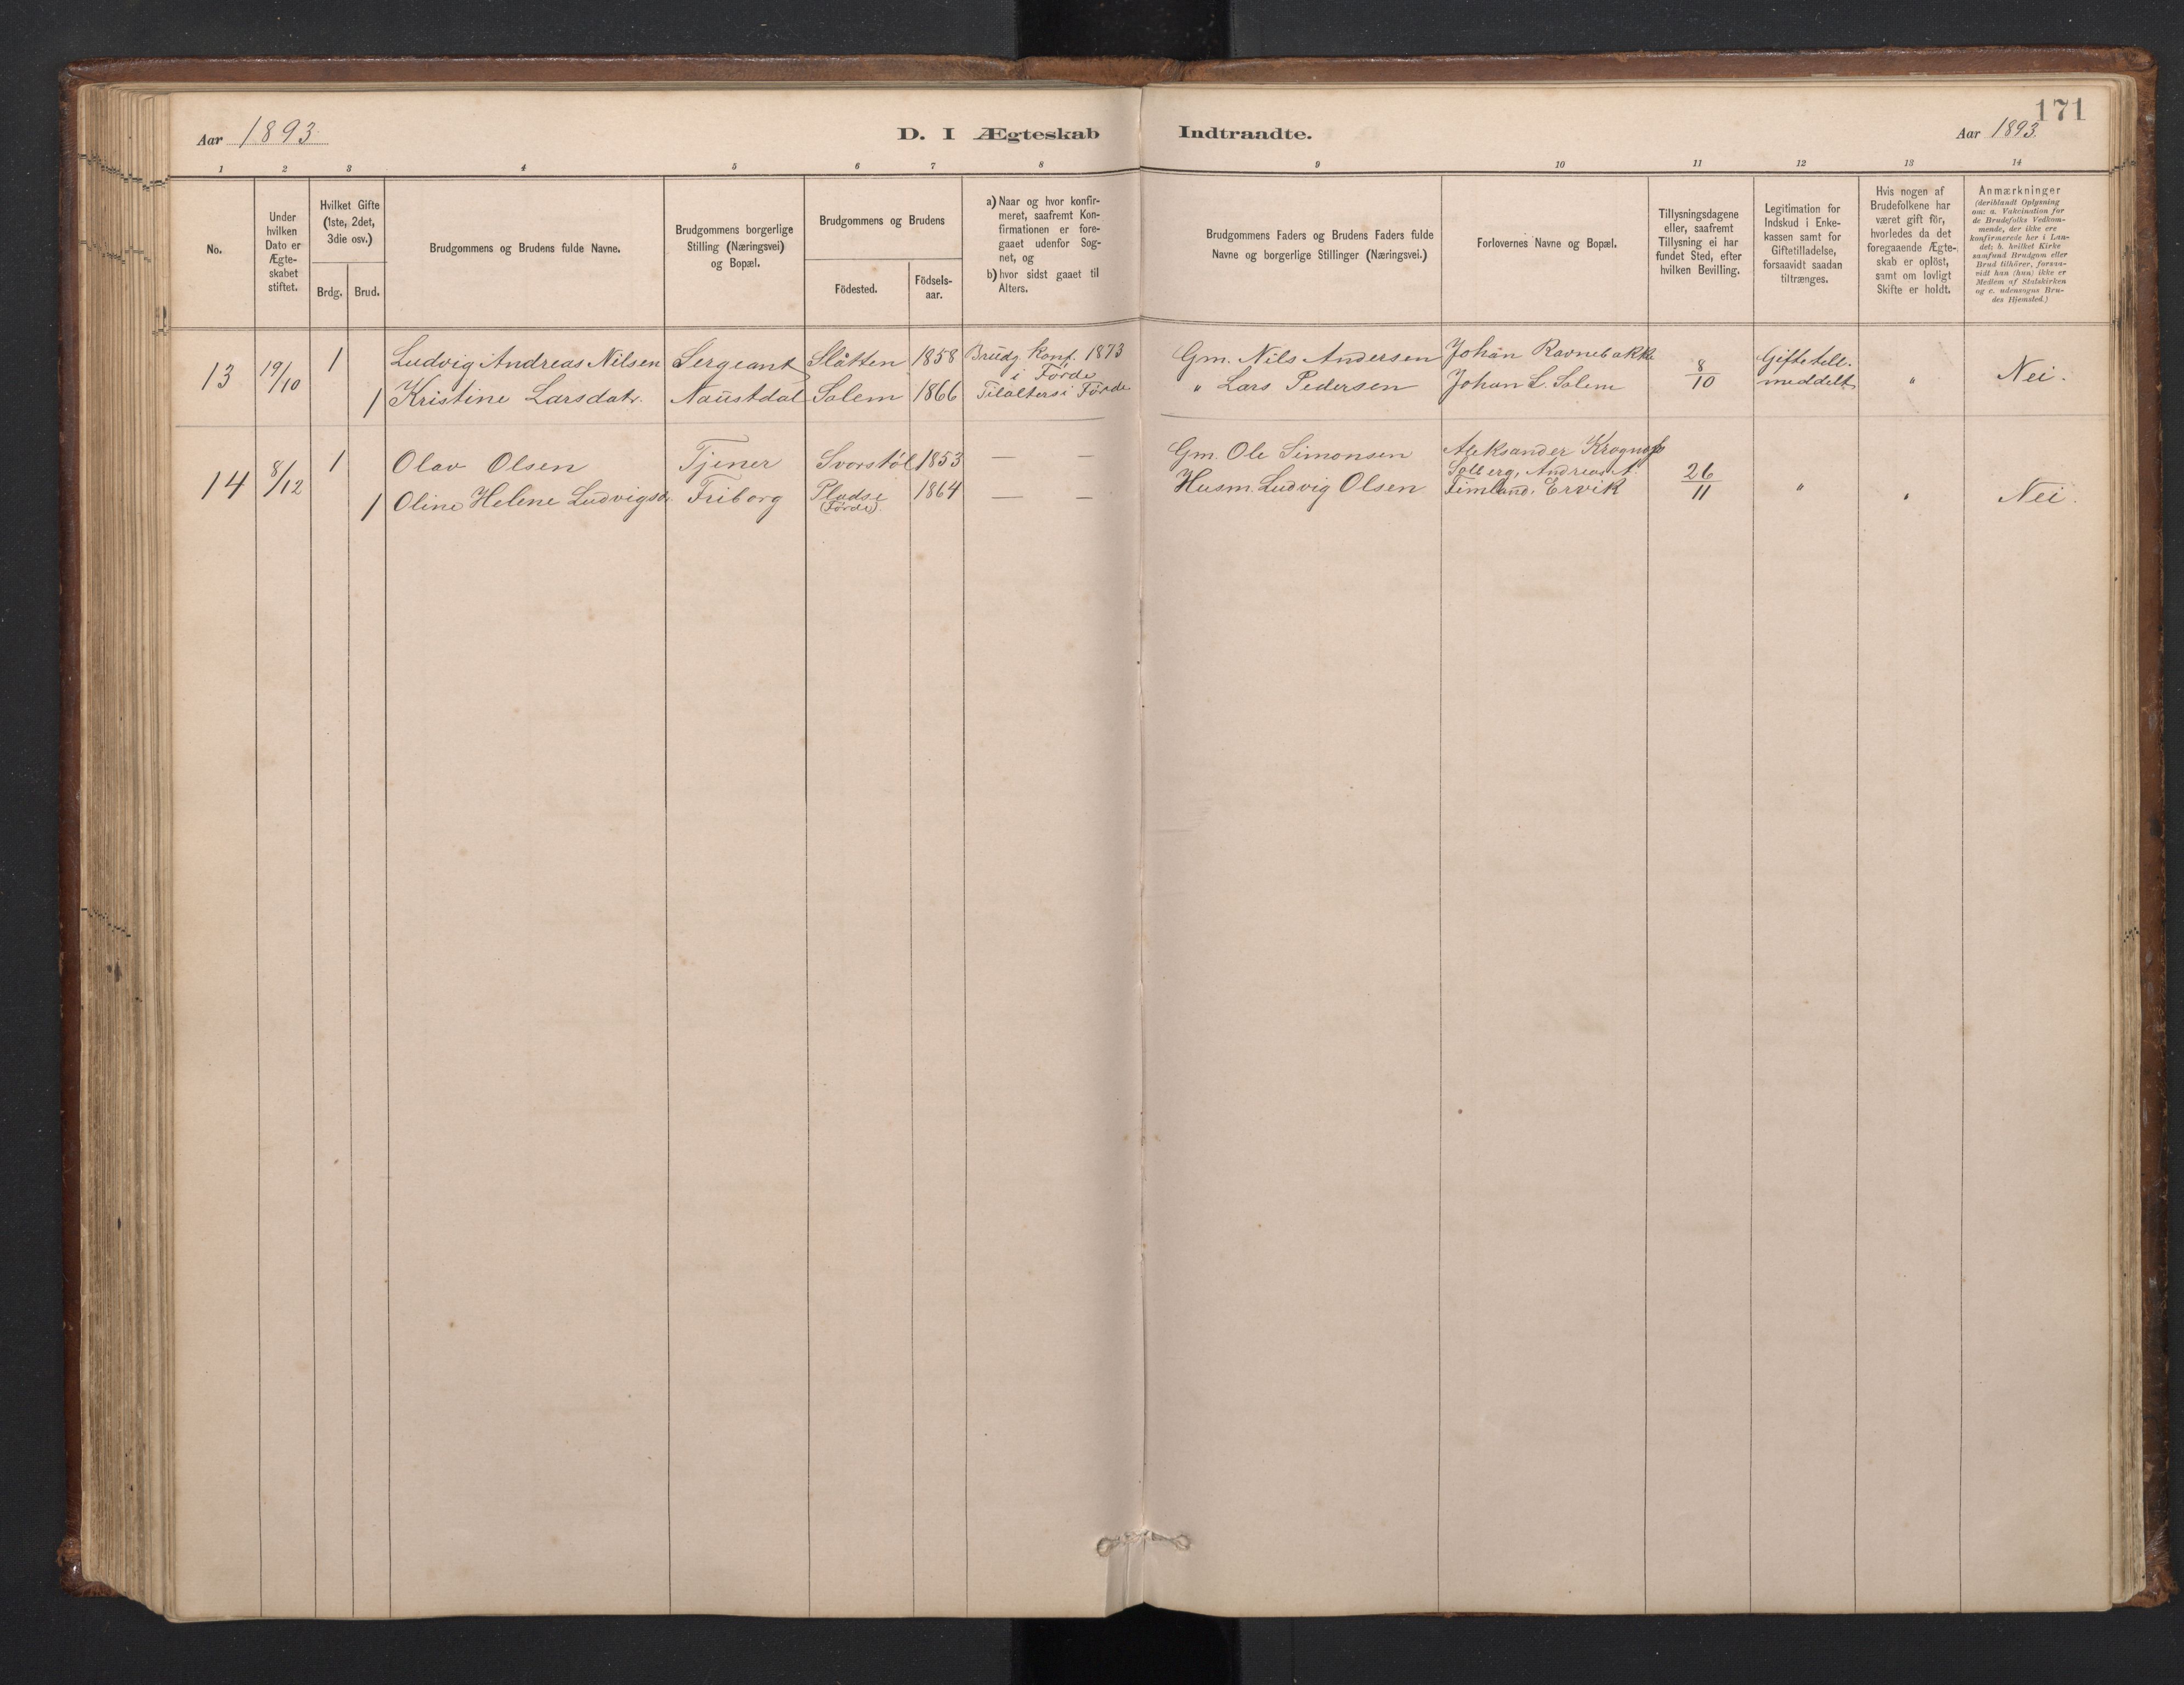 171
Aar 1893.
D. I Ægteskab Indtraadte.
Aar 1893.
1 2 3 4 5 6 7 8 9 10 11 12 13 14
No.
Under
hvilken
Dato er
Ægte-
skabet
stiftet.
Hvilket Gifte
(1ste, 2det,
3die osv.)
Brdg. Brud.
Brudgommens og Brudens fulde Navne.
Brudgommens borgerlige
Stilling (Næringsvei)
og Bopæl.
Brudgommens og Brudens
Födested.
Födsels-
aar.
a) Naar og hvor konfir-
meret, saafremt Kon-
firmationen er fore-
gaaet udenfor Sog-
net, og
b) hvor sidst gaaet til
Alters.
Brudgommens Faders og Brudens Faders fulde
Navne og borgerlige Stillinger (Næringsvei.)
Forlovernes Navne og Bopæl.
Tillysningsdagene
eller, saafremt
Tillysning ei har
fundet Sted, efter
hvilken Bevilling.
Legitimation for
Indskud i Enke-
kassen samt for
Giftetilladelse,
forsaavidt saadan
tiltrænges.
Hvis nogen af
Brudefolkene har
været gift för,
hvorledes da det
foregaaende Ægte-
skab er oplöst,
samt om lovligt
Skifte er holdt.
Anmærkninger
(deriblandt Oplysning
om: a. Vakcination for
de Brudefolks Vedkom-
mende, der ikke ere
konfirmerede her i Lan-
det; b. hvilket Kirke
samfund Brudgom eller
Brud tilhörer, forsaa-
vidt han (hun) ikke er
Medlem af Statskirken
og c. udensogns Bru-
des Hjemsted.)
13 19/10 1 Ludvig Andreas Nilsen Sergeant Slåtten 1858 Brudg. konf. 1873 Gm. Nils Andersen Johan Ravnebakke 8/10 Giftetill. " Nei.
i Förde
1 Kristine Larsdatr. Naustdal Solem 1866 Tilalters i Förde " Lars Pedersen Johan L. Solem meddelt
14 8/12 1 Olav Olsen Tjener Svorstöl 1853 — — Gm. Ole Simonsen Aleksander 26/11 " " Nei.
Solberg, Andreas A.
1 Oline Helene Ludvigsdr. Friborg Pladse 1864 — — Husm. Ludvig Olsen Timland, Ervik
(Förde).